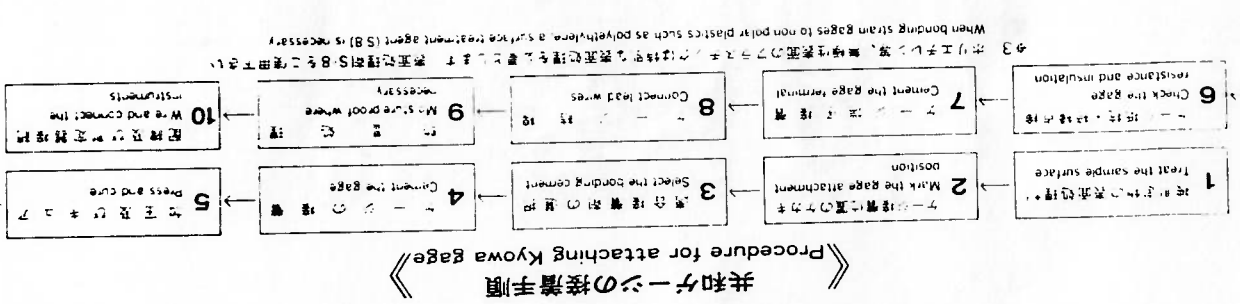 共和ゲージの接着手順
《Procedure for attaching Kyowa gage》
1 被測定物の表面処理
Treat the sample surface
2 ゲージ接着位置のケガキ
Mark the gage attachment
position
3 適合接着剤の選択
Select the bonding cement
4 ゲージの接着
Cement the gage
5 加圧及びキュア
Press and cure
6
Check the gage
resistance and insulation
7 ゲージ端子接着
Cement the gage terminal
8
Connect lead wires
9 防湿処理
Moisture proof where
necessary
10 配線及び測定器接続
Wire and connect the
instruments
3 ポリエチレン等、無極性表面のプラスチックは特別な表面処理を必要とします 表面処理剤S-8をご使用下さい
When bonding strain gages to non polar plastics such as polyethylene, a surface treatment agent (S 8) is necessary